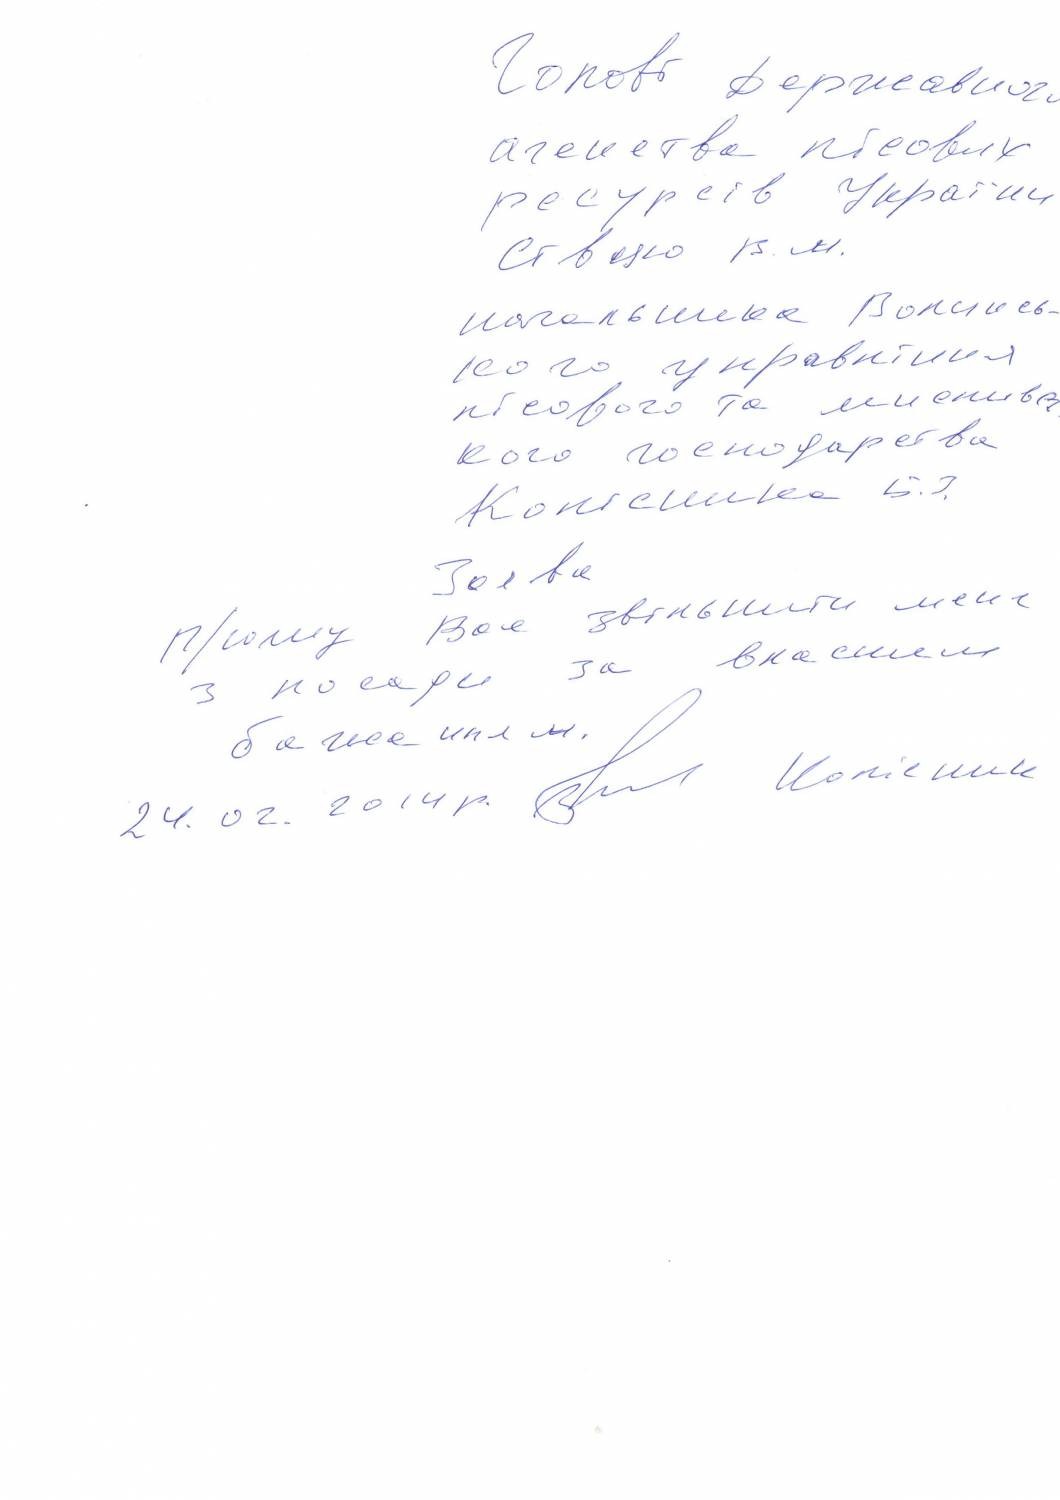 Голові Державного
агенства лісових
ресурсів України
Сівцю В.М.
начальника Волинсь-
кого управління
лісового та мисливсь
кого господарства
Колісника Б.І.
Заява
Прошу Вас звільнити мене
з посади за власним
бажанням.
24.02.2014р. Колісник